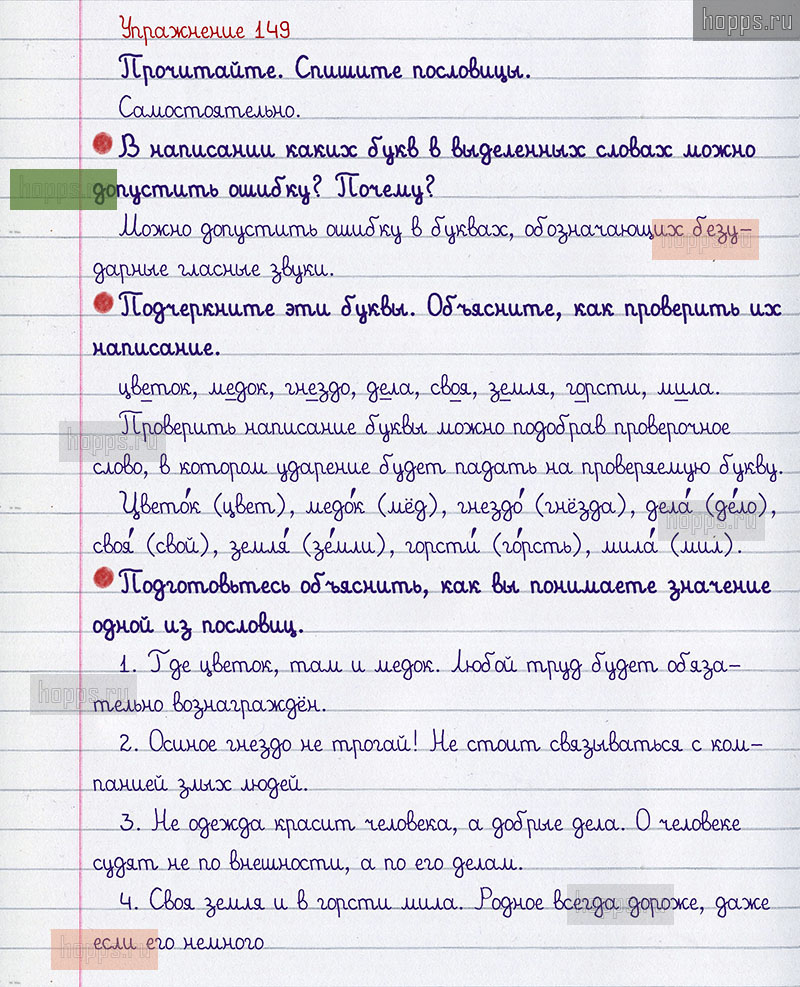 hopps.ru
Упражнение 149
Прочитайте. Спишите пословицы.
Самостоятельно.
В написании каких букв в выделенных словах можно
допустить ошибку? Почему?
Можно допустить ошибку в буквах, обозначающих безу-
дарные гласные звуки.
Подчеркните эти буквы. Объясните, как проверить их
написание.
цветок, медок, гнездо, дела, своя, земля, горсти, мила.
Проверить написание буквы можно подобрав проверочное
слово, в котором ударение будет падать на проверяемую букву.
Цвето́к (цвет), медо́к (мёд), гнездо́ (гнёзда), дела́ (де́ло),
своя́ (свой), земля́ (зе́мли), горсти́ (го́рсть), мила́ (мил).
Подготовьтесь объяснить, как вы понимаете значение
одной из пословиц.
1. Где цветок, там и медок. Любой труд будет обяза-
тельно вознаграждён.
2. Осиное гнездо не трогай! Не стоит связываться с ком-
панией злых людей.
3. Не одежда красит человека, а добрые дела. О человеке
судят не по внешности, а по его делам.
4. Своя земля и в горсти мила. Родное всегда дороже, даже
если его немного